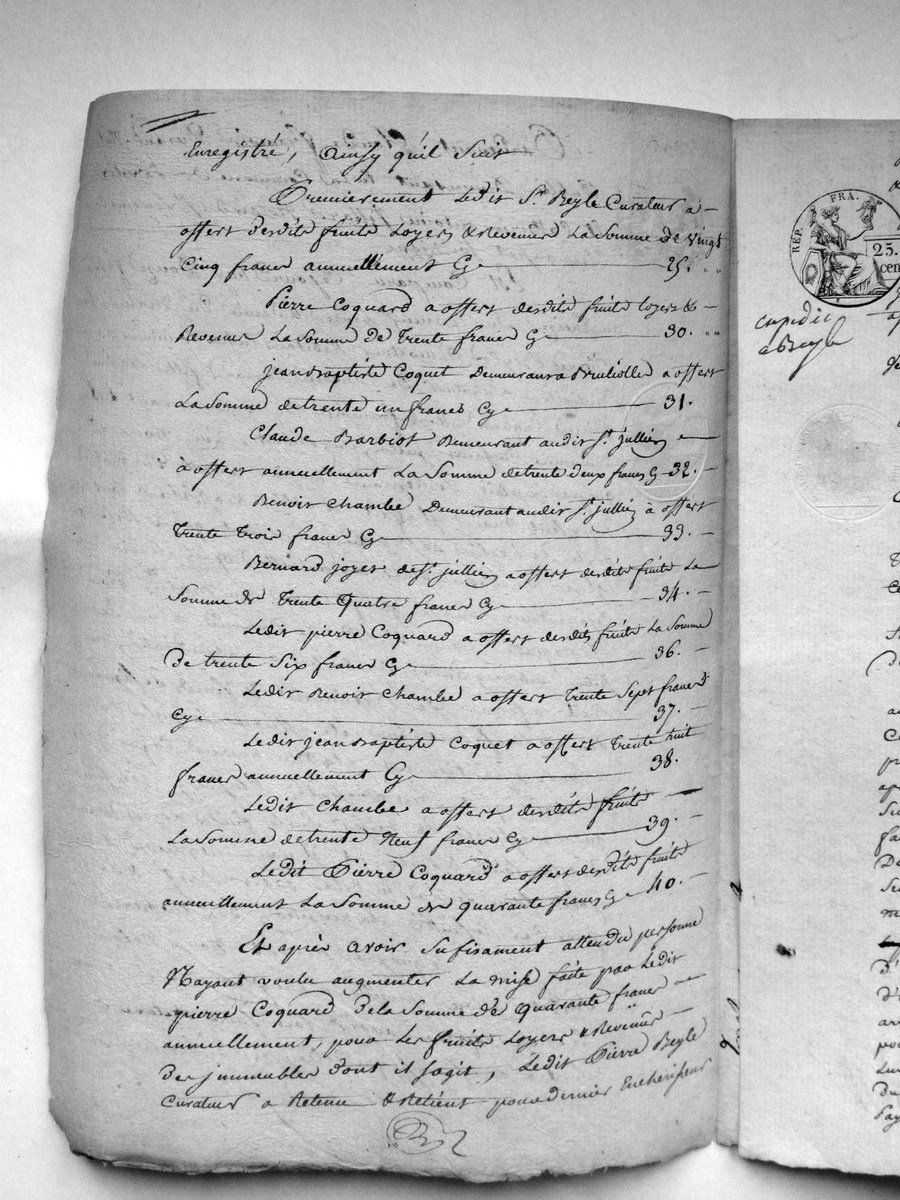 Enregistré, Ainsy qu'il suit
Premierement Ledit Sr. Beyle Curateur a
offert desdits fruits Loyers & Revenus La Somme de vingt
cinq francs annuellement Cy 25. "
Pierre Coquard a offert desdits fruits loyers &
Revenus La Somme de Trente francs Cy 30. "
jean Baptiste Coquet Demeurant a a offert
La Somme de trente un francs Cy 31.
Claude Barbiot Demeurant audit St. jullien
à offert annuellement La Somme de trente deux francs Cy 32.
Benoit Chambe Demeurant audit St. jullien à offert
Trente Trois francs Cy 33.
Bernard joyet de St. jullien a offert desdits fruits La
Somme de Trente Quatre francs Cy 34.
Ledit pierre Coquard a offert desdits fruits La Somme
De trente Six francs Cy 36.
Ledit Benoit Chambe a offert Trente Sept francs
Cy 37.
Ledit jean Baptiste Coquet a offert Trente huit
francs annuellement Cy 38.
Ledit Chambe a offert desdits fruits
La Somme de trente Neuf francs Cy 39.
Ledit Pierre Coquard a offert desdits fruits
annuellement La Somme de quarante francs Cy 40.
Et après avoir sufisament attendu personne
Nayant voulu augmenter La mise faite par Ledit
pierre Coquard de la Somme de quarante francs
annuellement, pour Les fruits Loyers & Revenus
Des jmmeubles dont il sagit, Ledit Pierre Beyle
Curateur a Retenu & Retient pour dernier Encherisseur
REP. FRA.
25.
cen
expedié
a Beyle